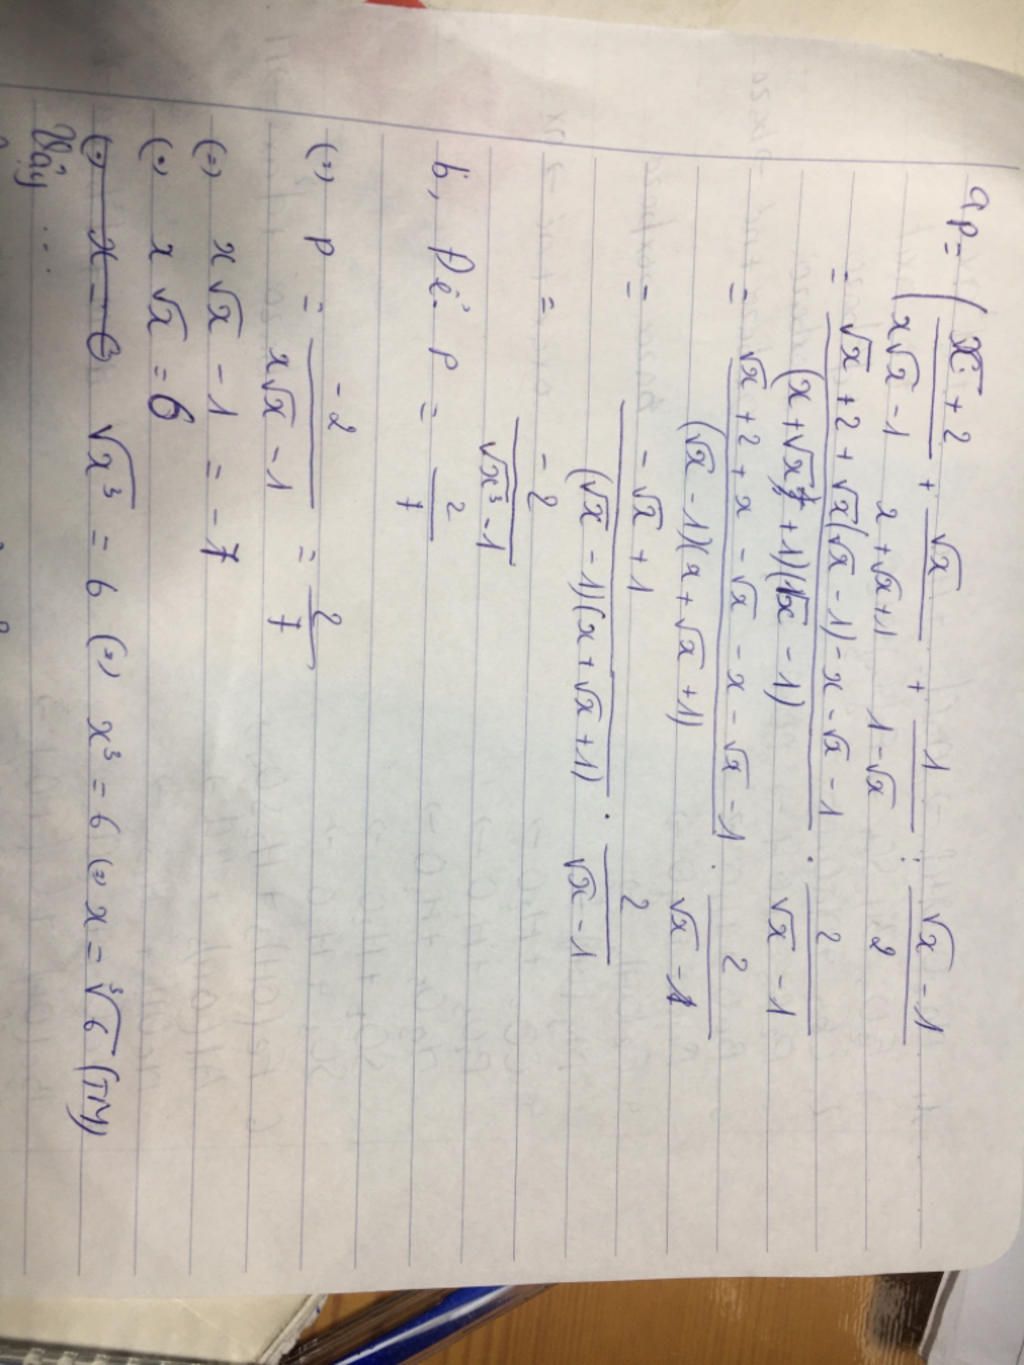 a, P = ( (√x + 2)/(x√x - 1) + √x/(x + √x + 1) + 1/(1 - √x) : (√x - 1)/2
= (√x + 2 + √x(√x - 1) - x - √x - 1)/((x + √x + 1)(√x - 1)) . 2/(√x - 1)
= (√x + 2 + x - √x - x - √x - 1)/((√x - 1)(x + √x + 1)) . 2/(√x - 1)
= (-√x + 1)/((√x - 1)(x + √x + 1)) . 2/(√x - 1)
= -2/(√x³ - 1)
b, Để P = 2/7
(=) P = -2/(x√x - 1) = 2/7
(=) x√x - 1 = -7
(=) x√x = 6
√x³ = 6 (=) x³ = 6 (=) x = ³√6 (TM)
Vậy ...